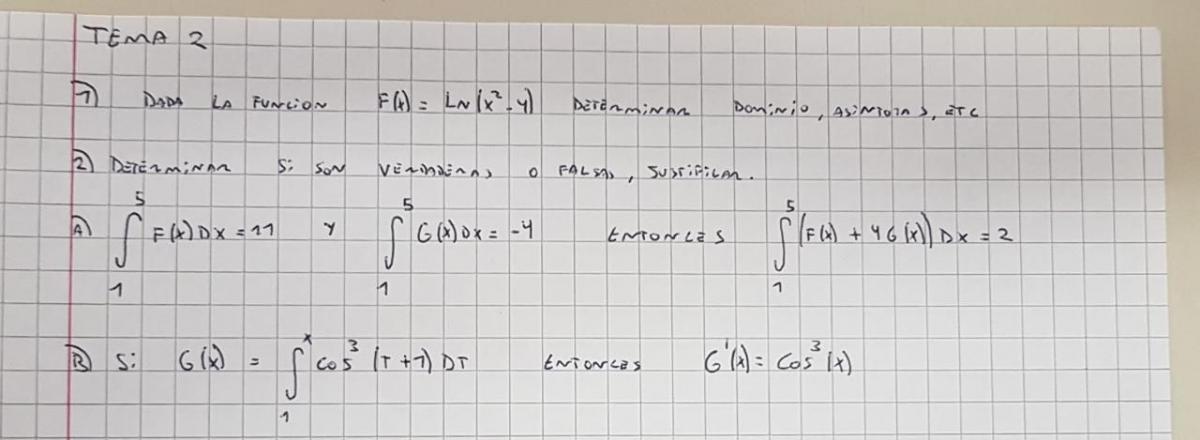 TEMA 2
1) DADA LA FUNCION F(x) = LN(x² - 4) DETERMINAR DOMINIO, ASINTOTAS, ETC
2) DETERMINAR Si SON VERDADERAS O FALSAS, JUSTIFICAR.
A) ∫₁⁵ F(x) Dx = 11 Y ∫₁⁵ G(x) Dx = -4 ENTONCES ∫₁⁵ (F(x) + 4G(x)) Dx = 2
B) Si G(x) = ∫₁ˣ cos³ (T+1) DT ENTONCES G'(x) = cos³(x)